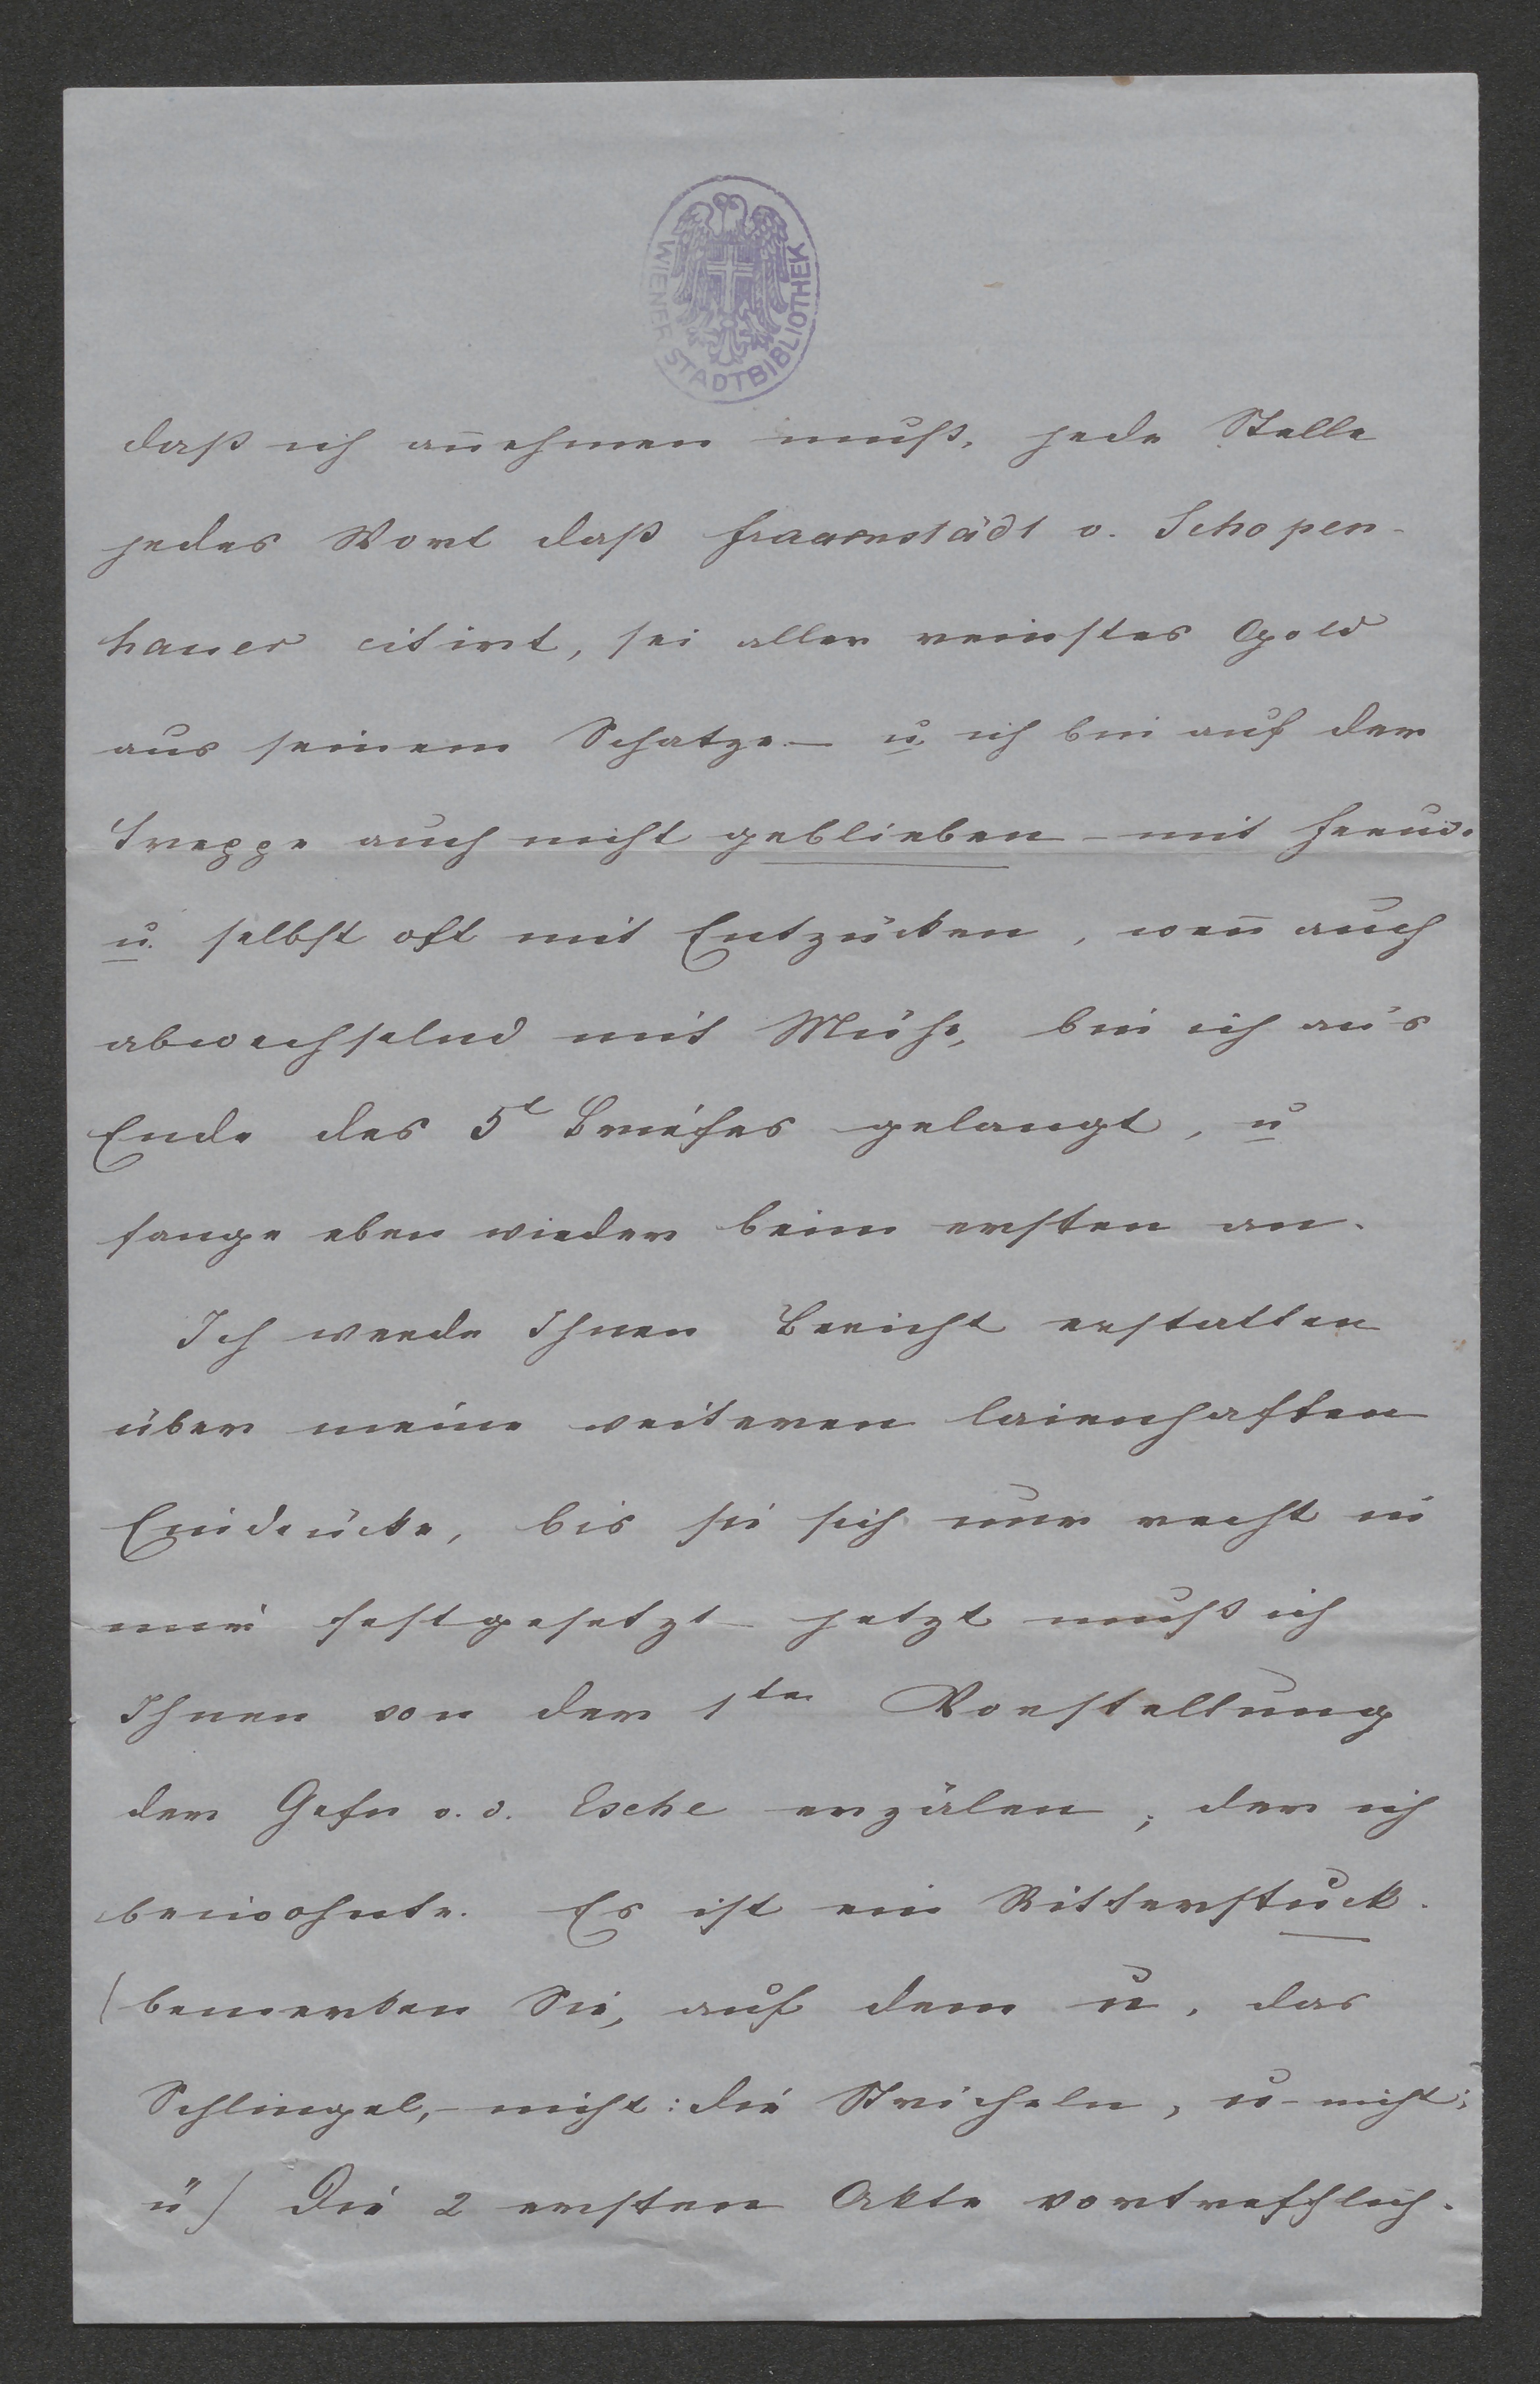 WIENER STADTBIBLIOTHEK
daß ich an̅ehmen muß, jede Stelle
jedes Wort daß Frauenstädt v. Schopen-
hauer citirt, sei aller reinstes Gold
aus seinem Schatze – u. ich bin auf der
Treppe auch nicht geblieben – mit Freud.
u. selbst oft mit Entzücken, wen̅ auch
abwechselnd mit Mühe, bin ich an's
Ende des 5t Briefes gelangt, u
fange eben wieder beim ersten an.
Ich werde Ihnen Bericht erstatten
über meine weiteren laienhaften
Eindrücke, bis sie sich nur recht in
mir festgesetzt – jetzt muß ich
Ihnen von der 1ten Vorstellung
der Grfn v. d. Esche erzälen, der ich
beiwohnte. Es ist ein Ritterstuck.
(bemerken Sie, auf dem u, das
Schlingel, – nicht: die Stricheln, u – nicht:
ü) Die 2 ersten Akte vortrefflich.